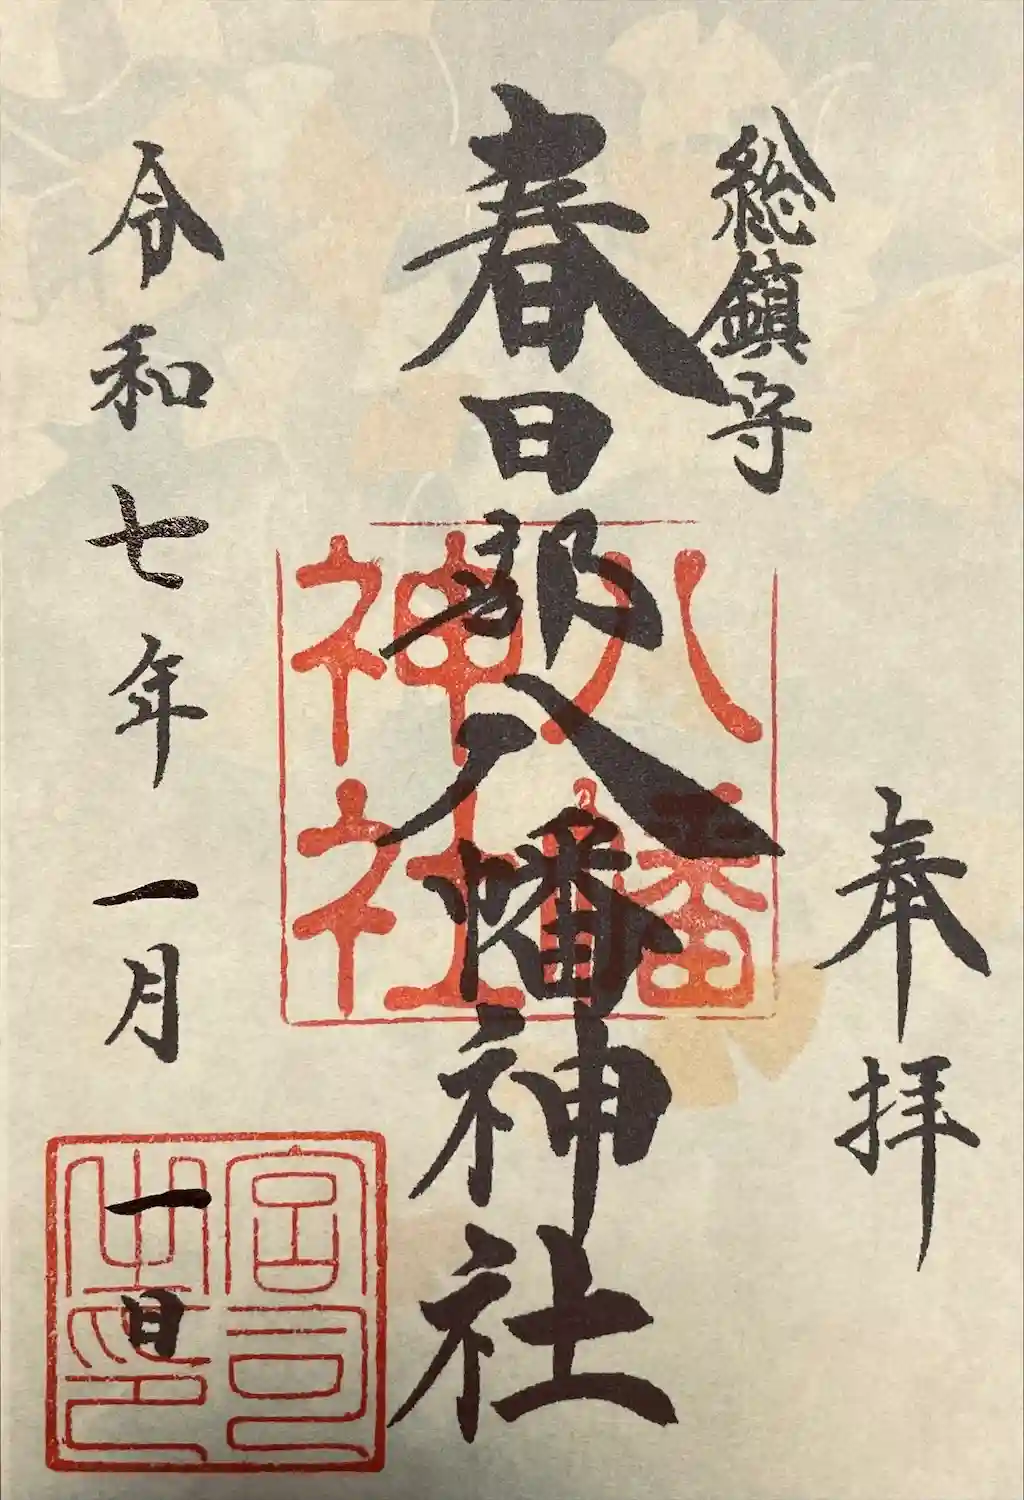 奉拝
総鎮守
春日部八幡神社
令和七年一月一日
八幡
神社
宮司
之印